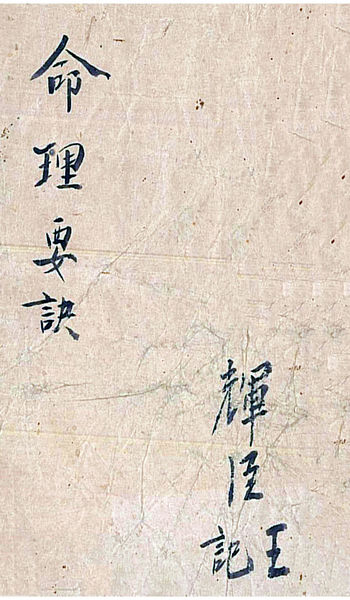 命理要訣
輝臣
王記